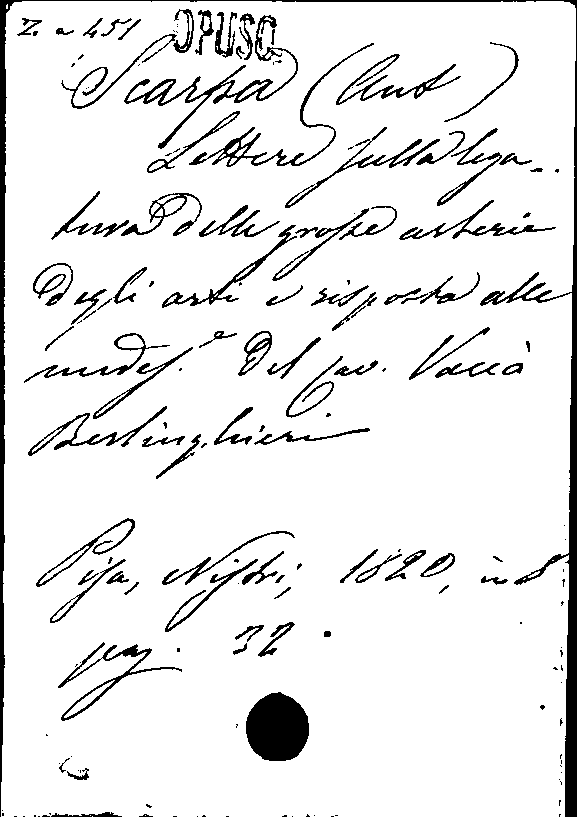 Z. a 451 OPUSC
Scarpa (Ant)
Lettere sulla lega-
tura delle grosse arterie
degli arti e risposta alle
medes.e del cav. Vaccà
Berlinghieri
Pisa, Nistri, 1820, in 8
pag. 32.